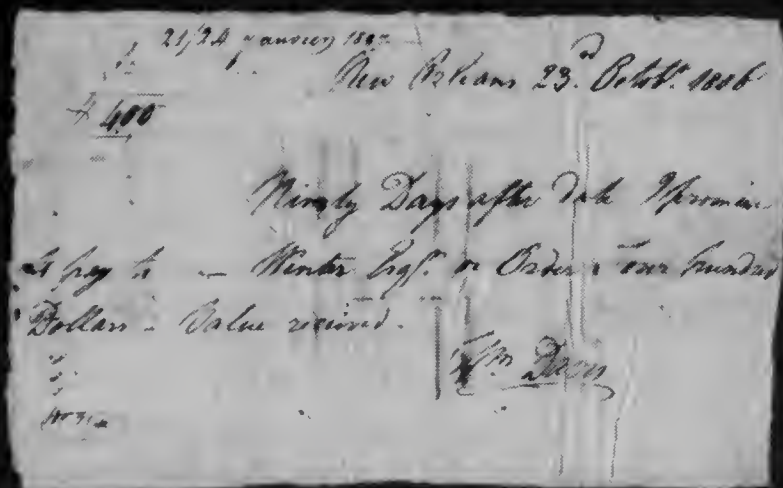 21/24 janvier 1807
New Orleans 23rd Octobr. 1806
$ 400
Ninety Days after date I promise
to pay to — Winter Esqr. or Order four hundred
Dollars — Value recieved.
Wm Davis